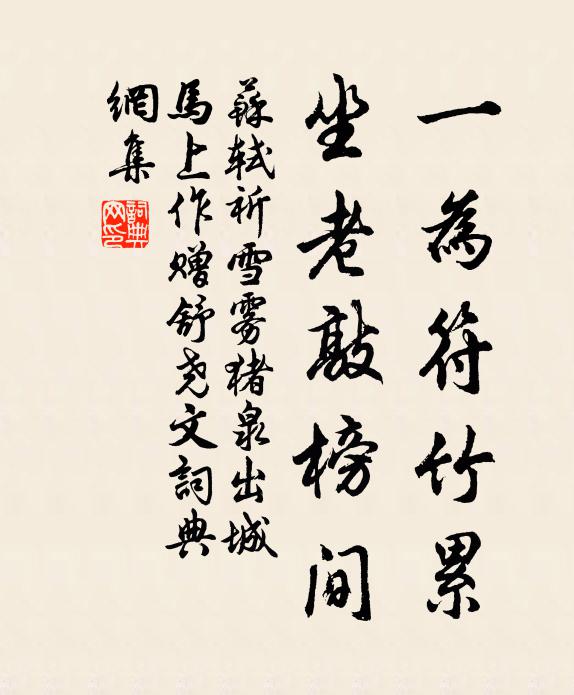 一為符竹累
坐老敲榜間
蘇軾祈雪雾猪泉出城
馬上作赠舒尧文詞典
網集
詞典
网印